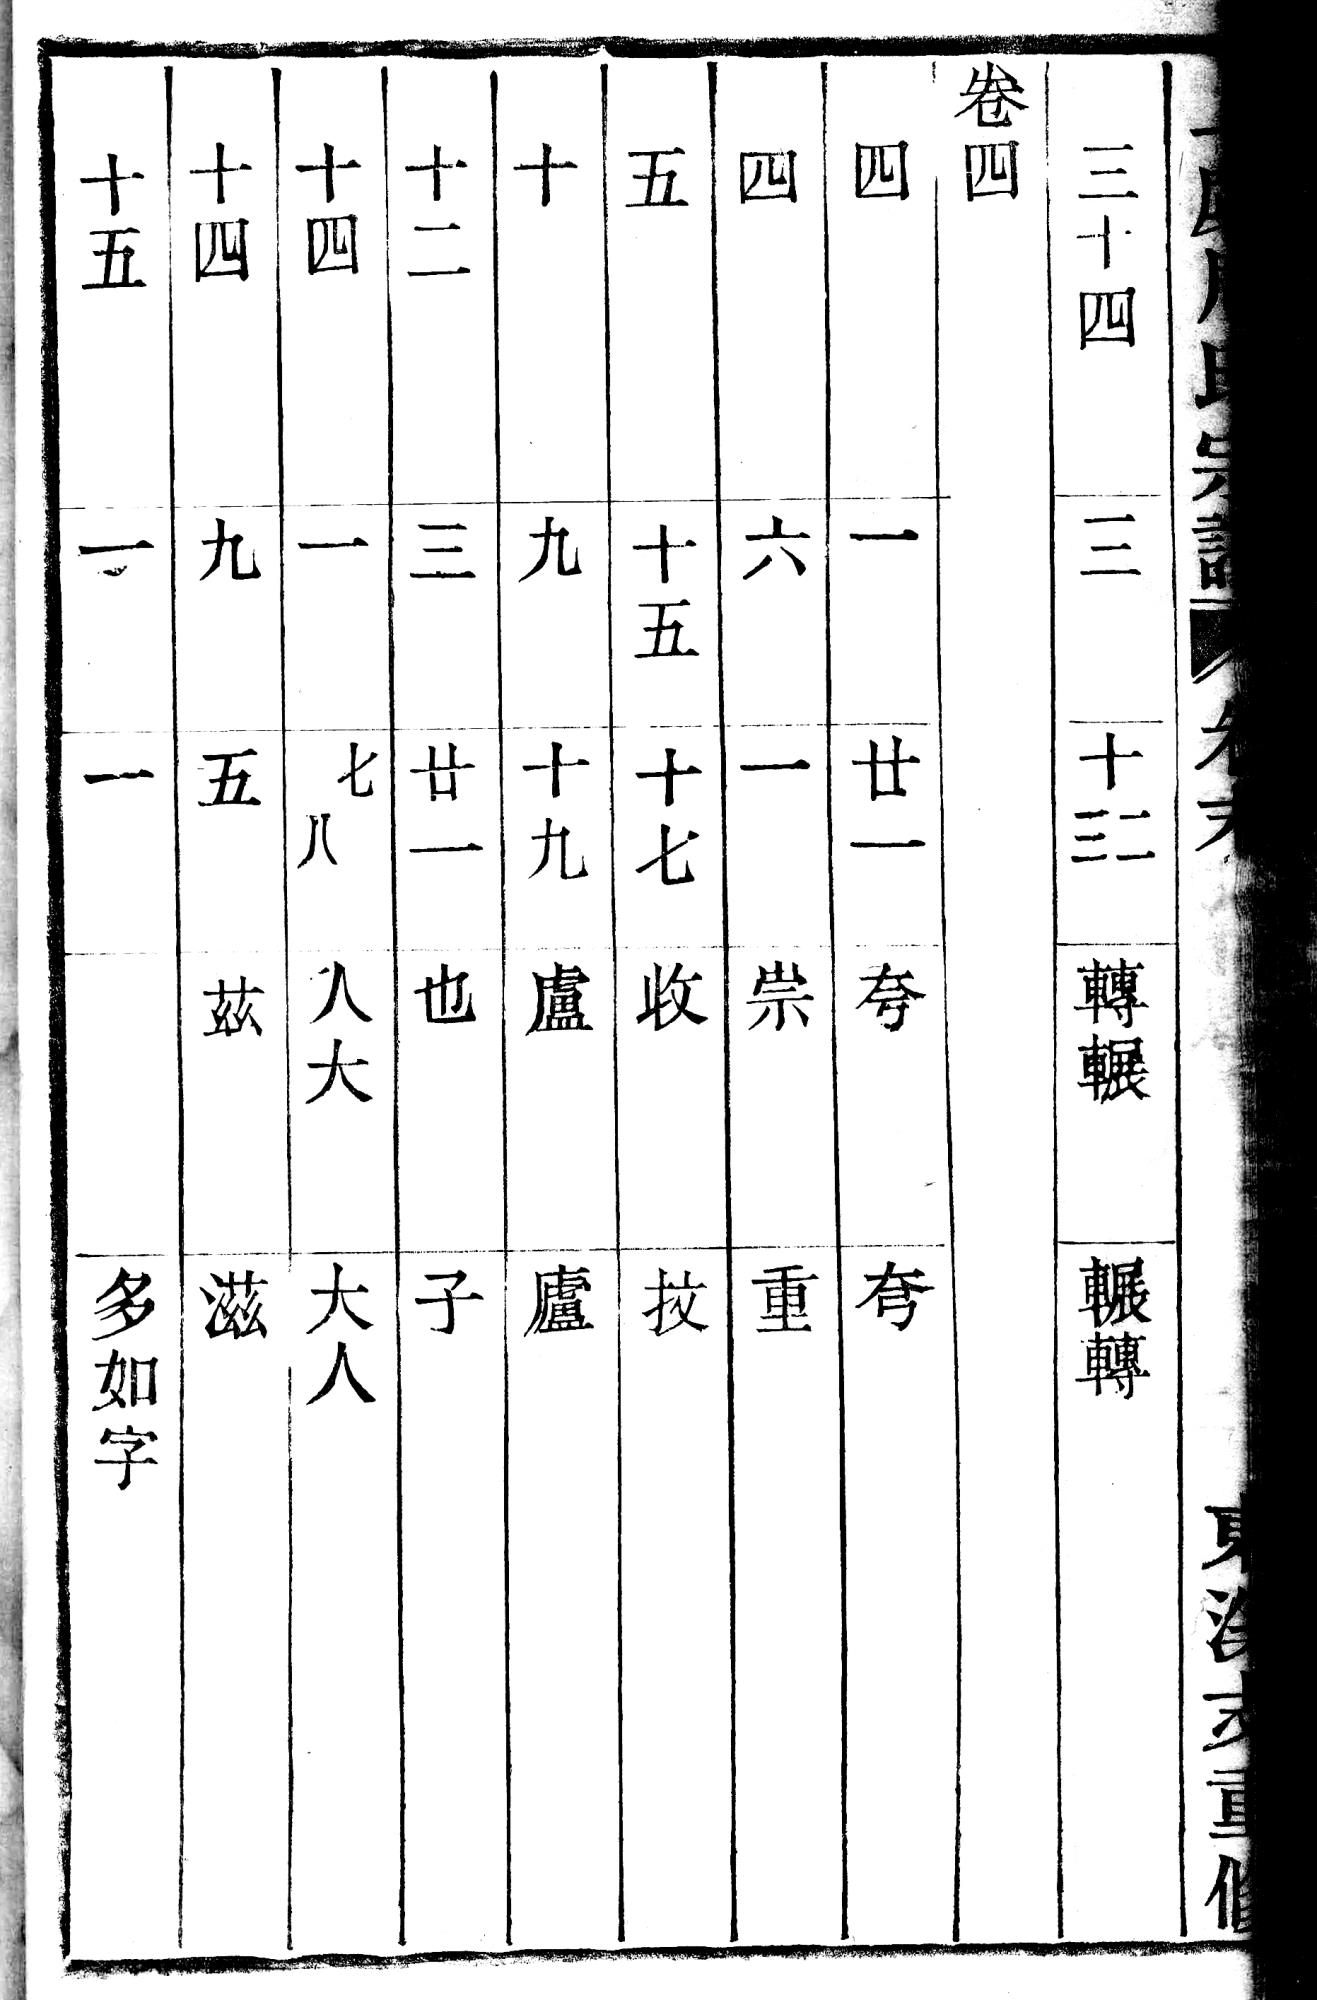 三十四 三 十二三 轉輾 輾轉
卷四
四 一 廿一 夸 夸
四 六 一 祟 重
五 十五 十七 收 技
十 九 十九 盧 廬
十二 三 廿一 也 子
十四 一 七八 人大 大人
十四 九 五 茲 滋
十五 一 一 多如字